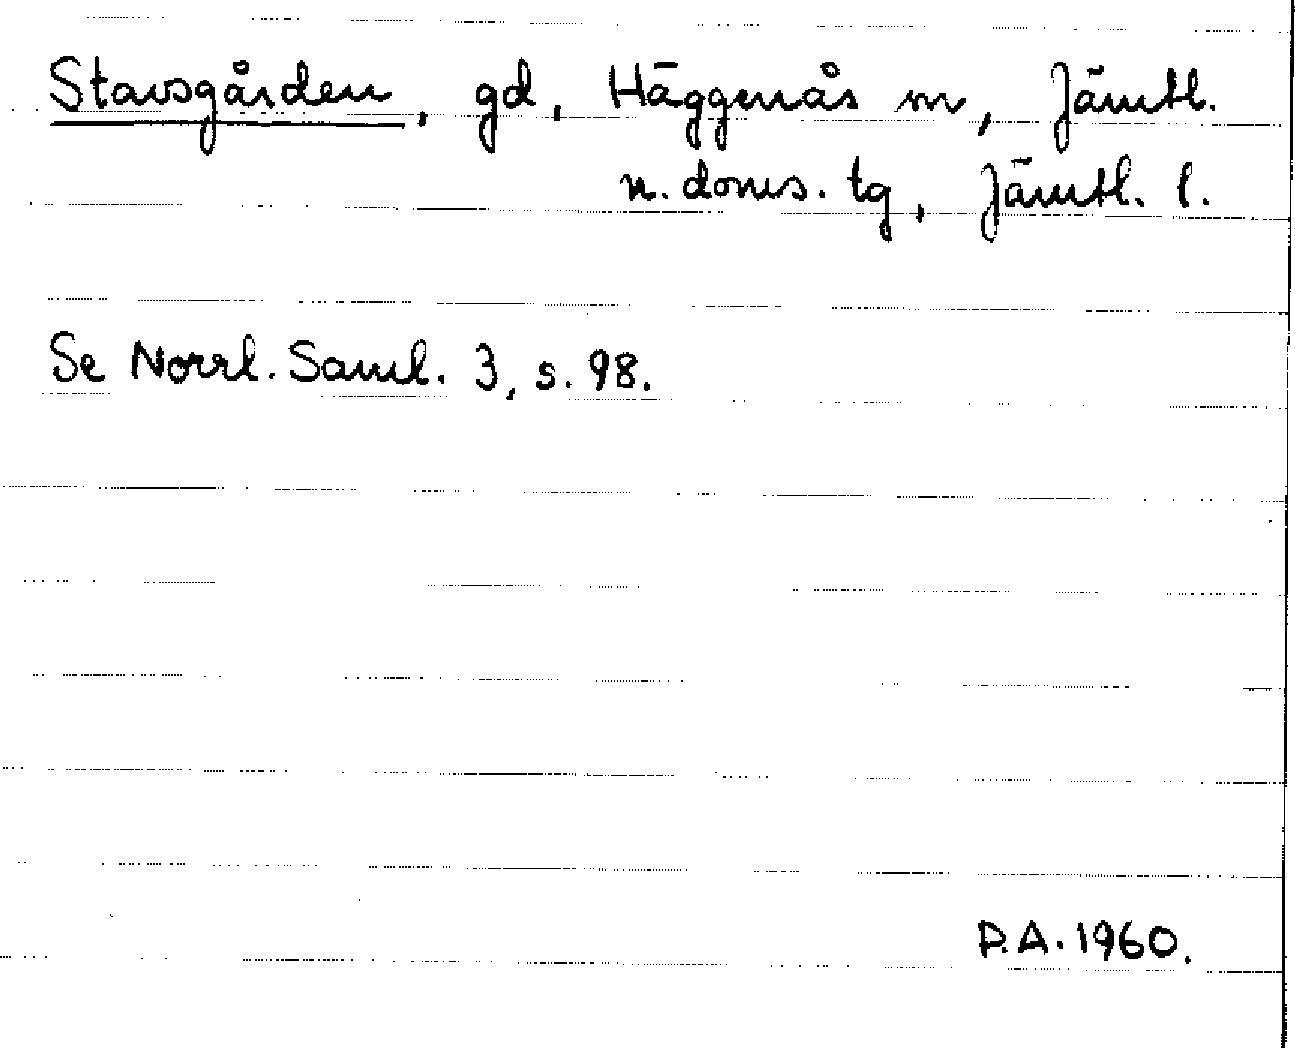 Stavsgården, gd, Häggenås sn, Jämtl.
n. doms. tg, Jämtl. l.
Se Norrl. Saml. 3, s. 98.
P.A. 1960.